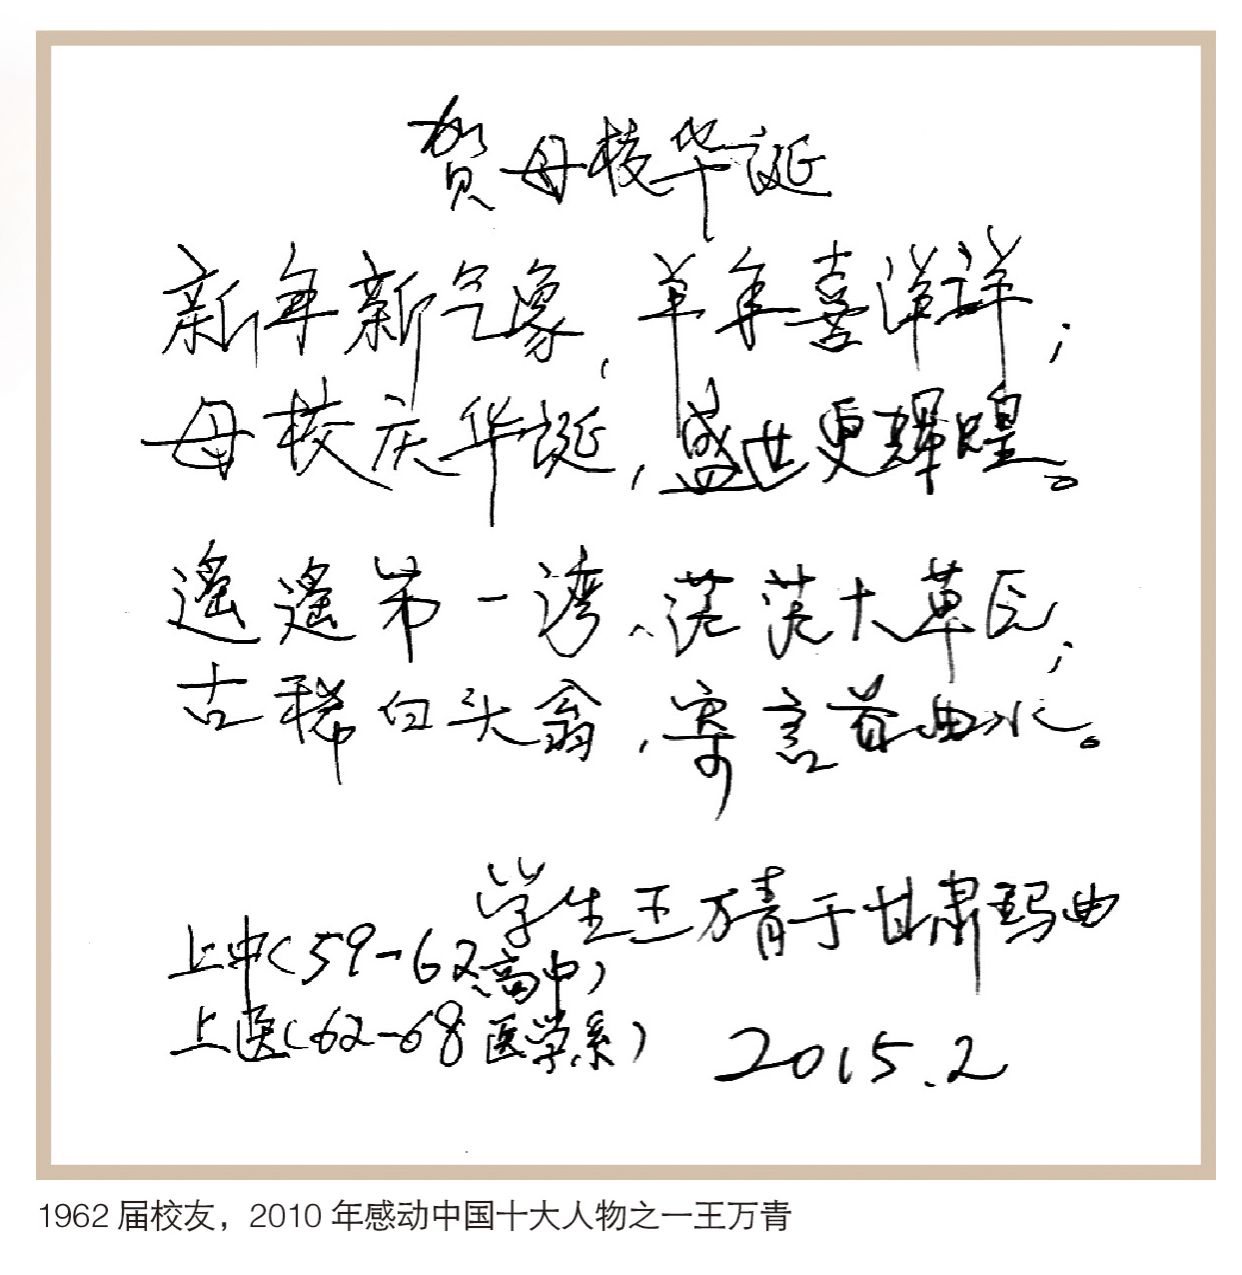 贺母校华诞
新年新气象,羊年喜洋洋;
母校庆华诞,盛世更辉煌。
遥遥第一湾、茫茫大草原;
古稀白头翁,寄言首曲水。
学生王万青于甘肃玛曲
上中(59-62高中)
上医(62-68医学系)
2015.2
1962届校友，2010年感动中国十大人物之一王万青